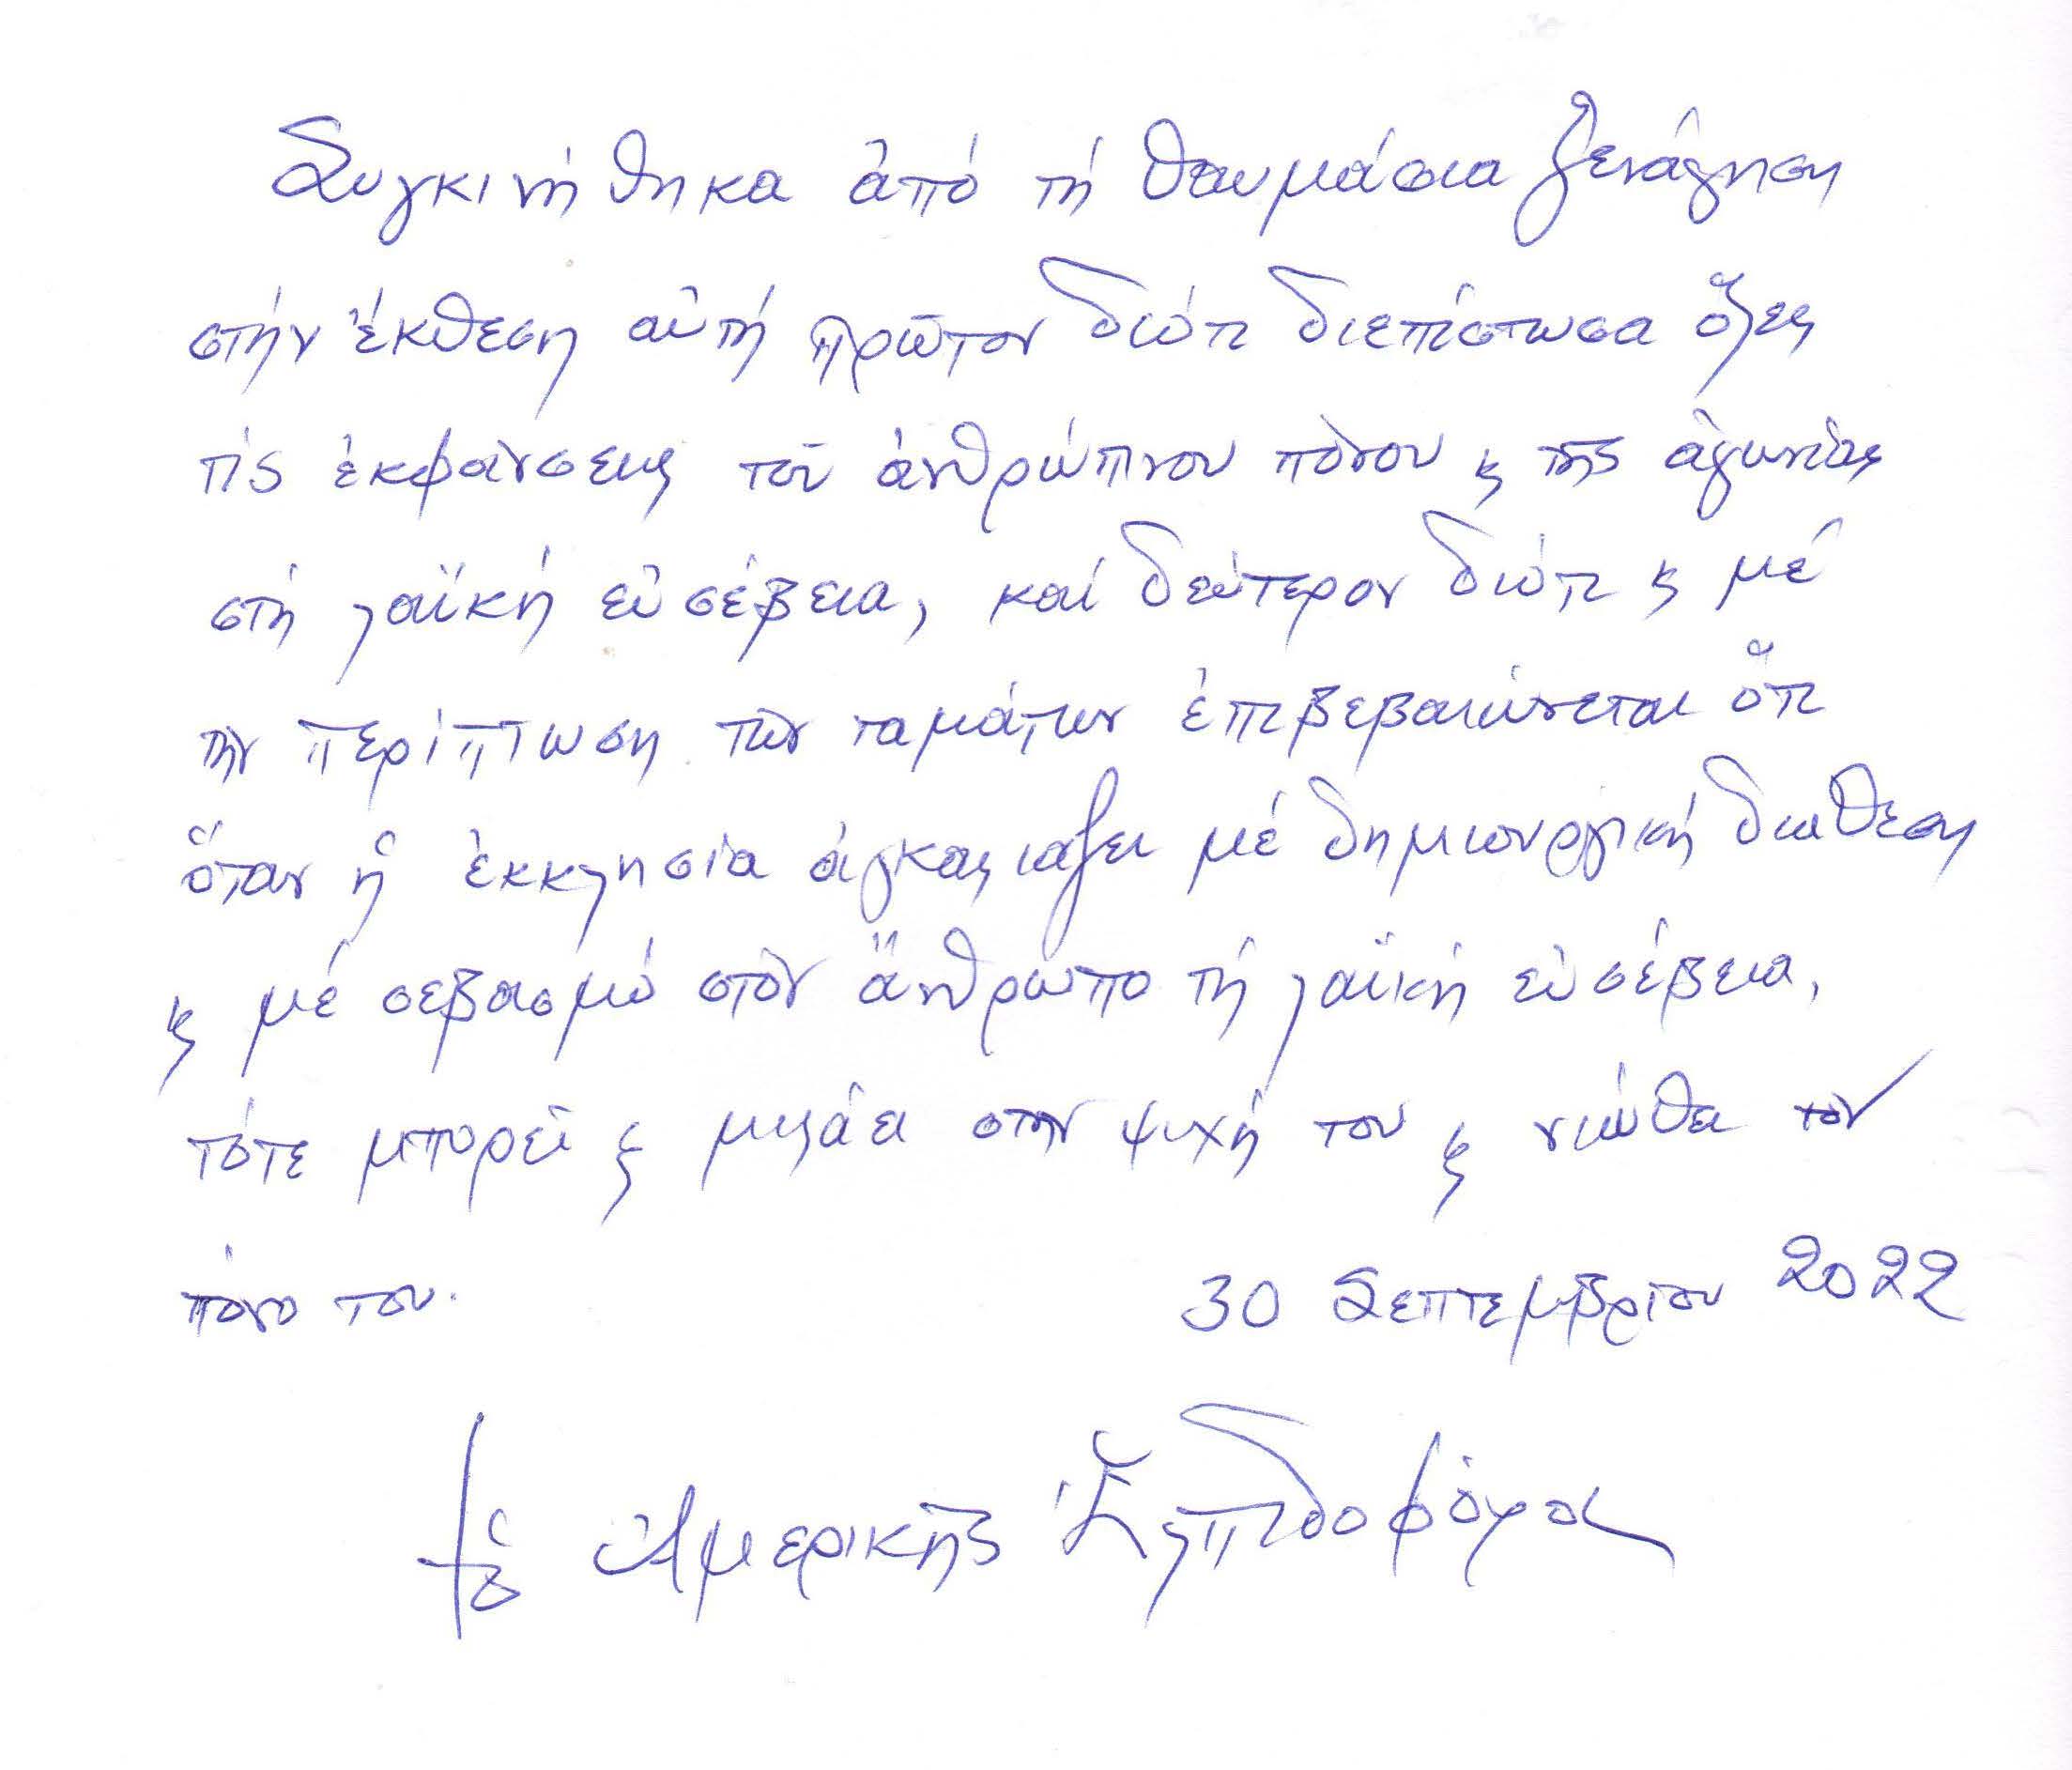 Συγκινήθηκα ἀπό τή θαυμάσια ξενάγηση
στήν ἔκθεση αὐτή πρῶτον διότι διεπίστωσα ὅλες
τίς ἐκφάνσεις τοῦ ἀνθρώπινου πόνου κ τῆς ἀγωνίας
στή λαϊκή εὐσέβεια, καί δεύτερον διότι κ μέ
τήν περίπτωση τῶν ταμάτων ἐπιβεβαιώνεται ὅτι
ὅταν ἡ ἐκκλησία ἀγκαλιάζει μέ δημιουργική διάθεση
κ μέ σεβασμό στόν ἄνθρωπο τή λαϊκή εὐσέβεια,
τότε μπορεῖ κ μιλάει στήν ψυχή του κ νιώθει τόν
πόνο του.
30 Σεπτεμβρίου 2022
† ὁ Ἀμερικῆς Ἐλπιδοφόρος